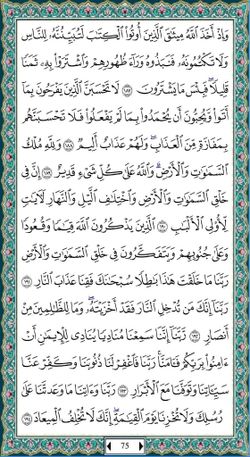 وَإِذْ أَخَذَ اللَّهُ مِيثَاقَ الَّذِينَ أُوتُوا الْكِتَابَ لَتُبَيِّنُنَّهُ لِلنَّاسِ
وَلَا تَكْتُمُونَهُ فَنَبَذُوهُ وَرَاءَ ظُهُورِهِمْ وَاشْتَرَوْا بِهِ ثَمَنًا
قَلِيلًا فَبِئْسَ مَا يَشْتَرُونَ ١٨٧ لَا تَحْسَبَنَّ الَّذِينَ يَفْرَحُونَ بِمَا
أَتَوا وَّيُحِبُّونَ أَن يُحْمَدُوا بِمَا لَمْ يَفْعَلُوا فَلَا تَحْسَبَنَّهُم
بِمَفَازَةٍ مِّنَ الْعَذَابِ وَلَهُمْ عَذَابٌ أَلِيمٌ ١٨٨ وَلِلَّهِ مُلْكُ
السَّمَاوَاتِ وَالْأَرْضِ وَاللَّهُ عَلَىٰ كُلِّ شَيْءٍ قَدِيرٌ ١٨٩ إِنَّ فِي
خَلْقِ السَّمَاوَاتِ وَالْأَرْضِ وَاخْتِلَافِ اللَّيْلِ وَالنَّهَارِ لَآيَاتٍ
لِّأُولِي الْأَلْبَابِ ١٩٠ الَّذِينَ يَذْكُرُونَ اللَّهَ قِيَامًا وَقُعُودًا
وَعَلَىٰ جُنُوبِهِمْ وَيَتَفَكَّرُونَ فِي خَلْقِ السَّمَاوَاتِ وَالْأَرْضِ
رَبَّنَا مَا خَلَقْتَ هَٰذَا بَاطِلًا سُبْحَانَكَ فَقِنَا عَذَابَ النَّارِ ١٩١
رَبَّنَا إِنَّكَ مَن تُدْخِلِ النَّارَ فَقَدْ أَخْزَيْتَهُ وَمَا لِلظَّالِمِينَ مِنْ
أَنصَارٍ ١٩٢ رَّبَّنَا إِنَّنَا سَمِعْنَا مُنَادِيًا يُنَادِي لِلْإِيمَانِ أَنْ
آمِنُوا بِرَبِّكُمْ فَآمَنَّا رَبَّنَا فَاغْفِرْ لَنَا ذُنُوبَنَا وَكَفِّرْ عَنَّا
سَيِّئَاتِنَا وَتَوَفَّنَا مَعَ الْأَبْرَارِ ١٩٣ رَبَّنَا وَآتِنَا مَا وَعَدتَّنَا عَلَىٰ
رُسُلِكَ وَلَا تُخْزِنَا يَوْمَ الْقِيَامَةِ إِنَّكَ لَا تُخْلِفُ الْمِيعَادَ ١٩٤
75